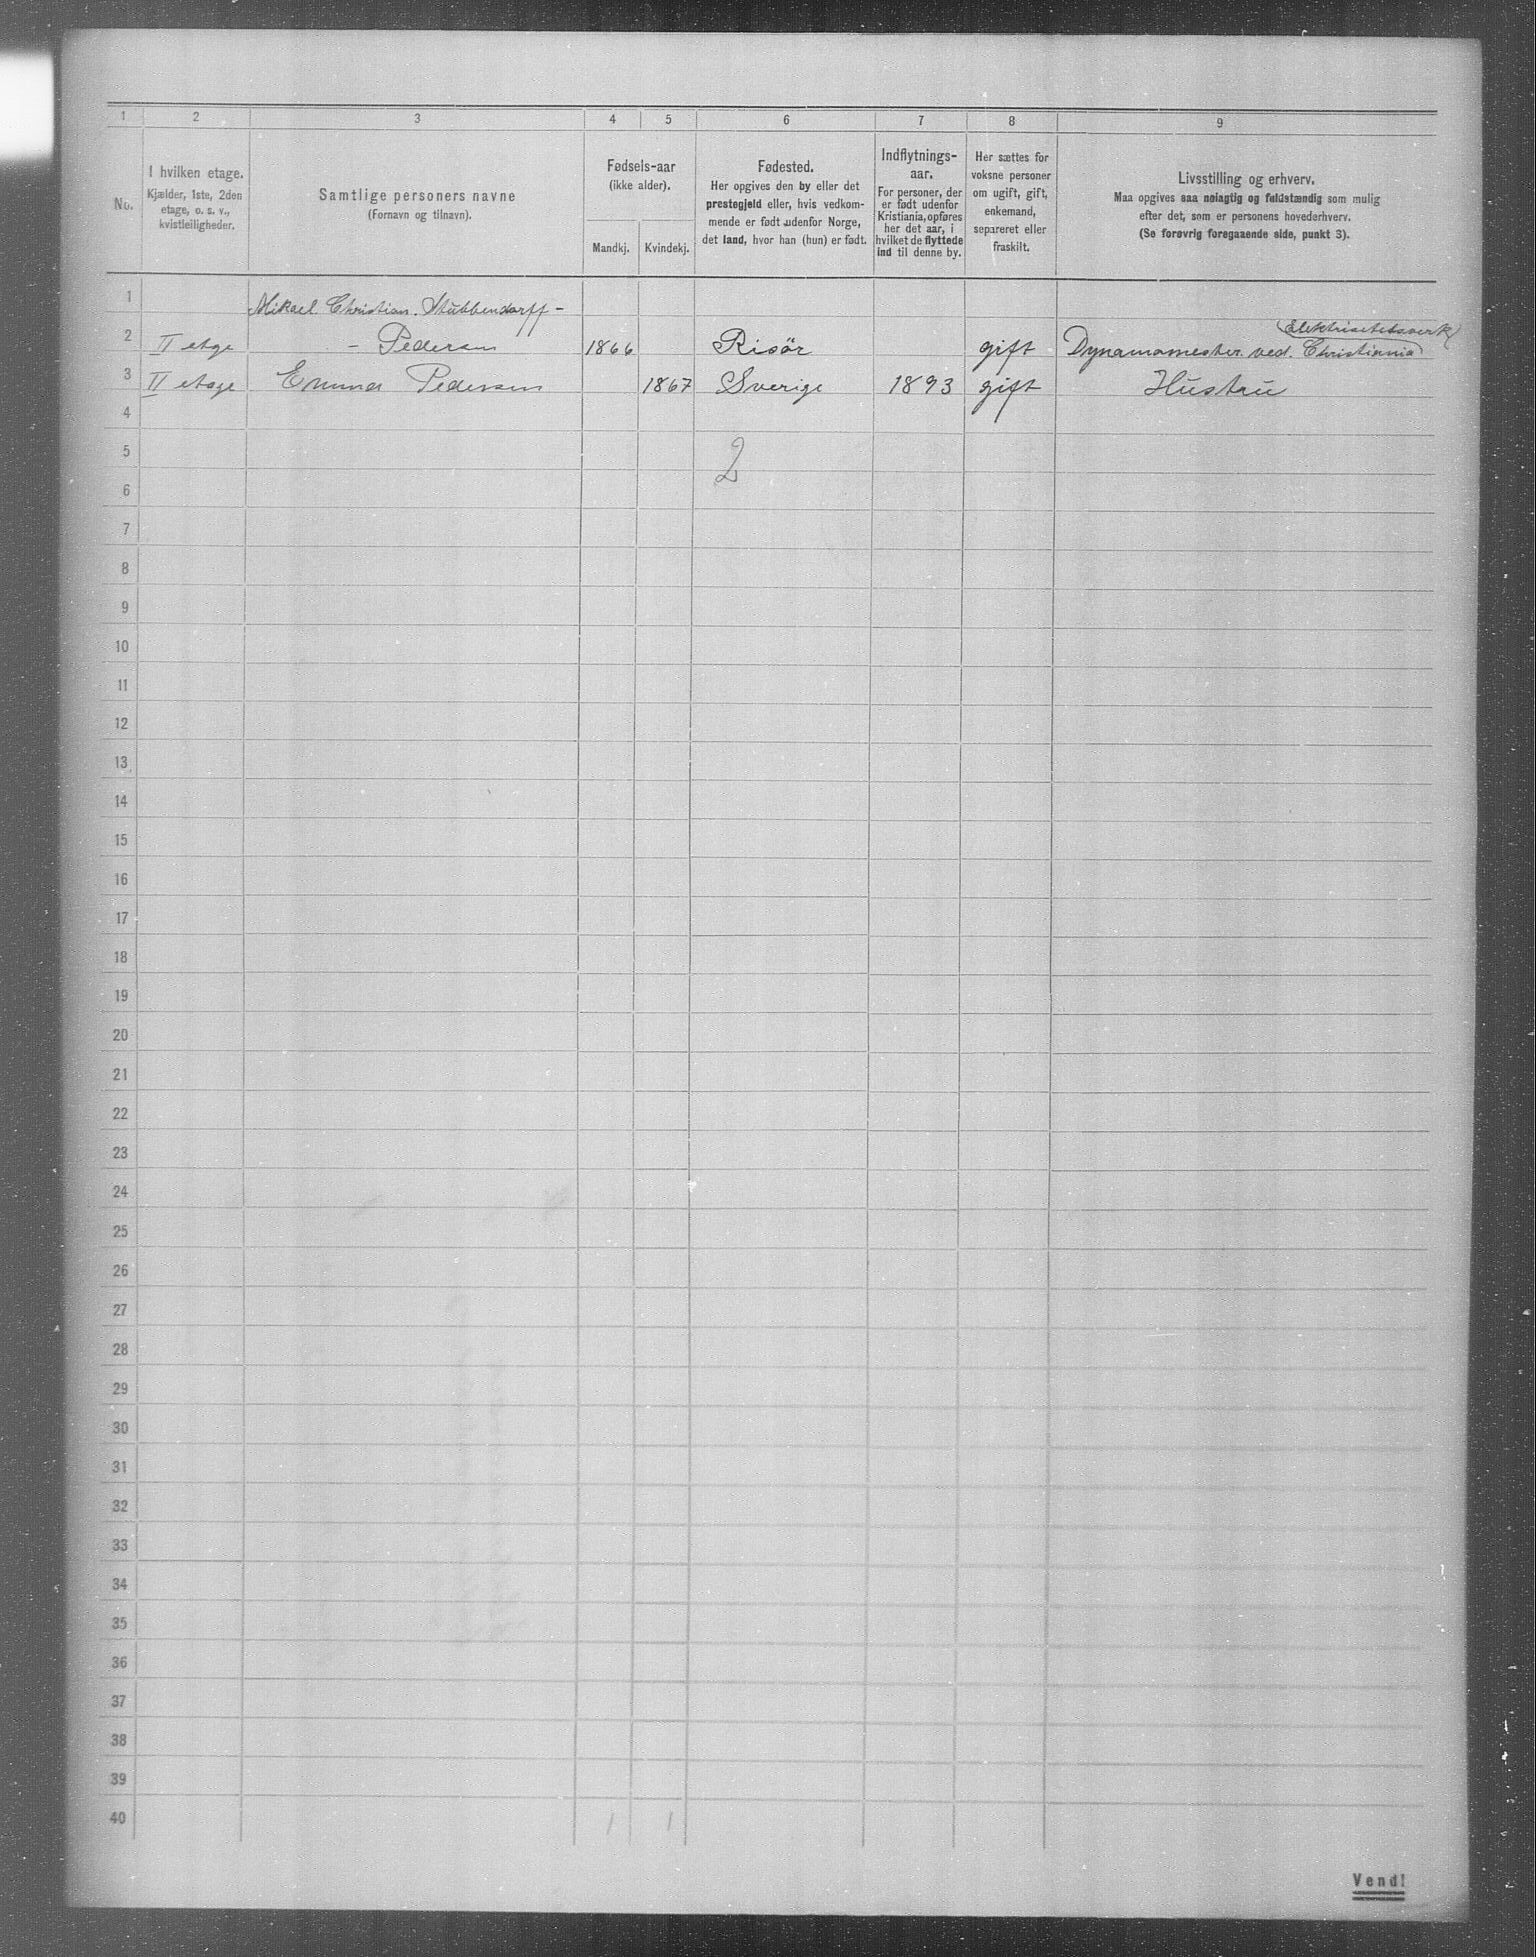 1 2 3 4 5 6 7 8 9
No.
I hvilken etage.
Kjælder, 1ste, 2den
etage, o. s. v.,
kvistleiligheder.
Samtlige personers navne
(Fornavn og tilnavn).
Fødsels-aar
(ikke alder).
Mandkj. Kvindekj.
Fødested.
Her opgives den by eller det
prestegjeld eller, hvis vedkom-
mende er født udenfor Norge,
det land, hvor han (hun) er født.
Indflytnings-
aar.
For personer, der
er født udenfor
Kristiania, opføres
her det aar, i
hvilket de flyttede
ind til denne by.
Her sættes for
voksne personer
om ugift, gift,
enkemand,
separeret eller
fraskilt.
Livsstilling og erhverv.
Maa opgives saa nøiagtig og fuldstændig som mulig
efter det, som er personens hovederhverv.
(Se forøvrig foregaaende side, punkt 3).
1 Mikael Christian. Stubbendorff -
Elektrisitetsverk
2 II etge - Pedersen 1866 Risør gift Dynamomester. ved. Christiania
3 II etage Emma Pedersen 1867 Sverige 1893 gift Hustru
4
5 2
6
7
8
9
10
11
12
13
14
15
16
17
18
19
20
21
22
23
24
25
26
27
28
29
30
31
32
33
34
35
36
37
38
39
40 1 1
Vend!